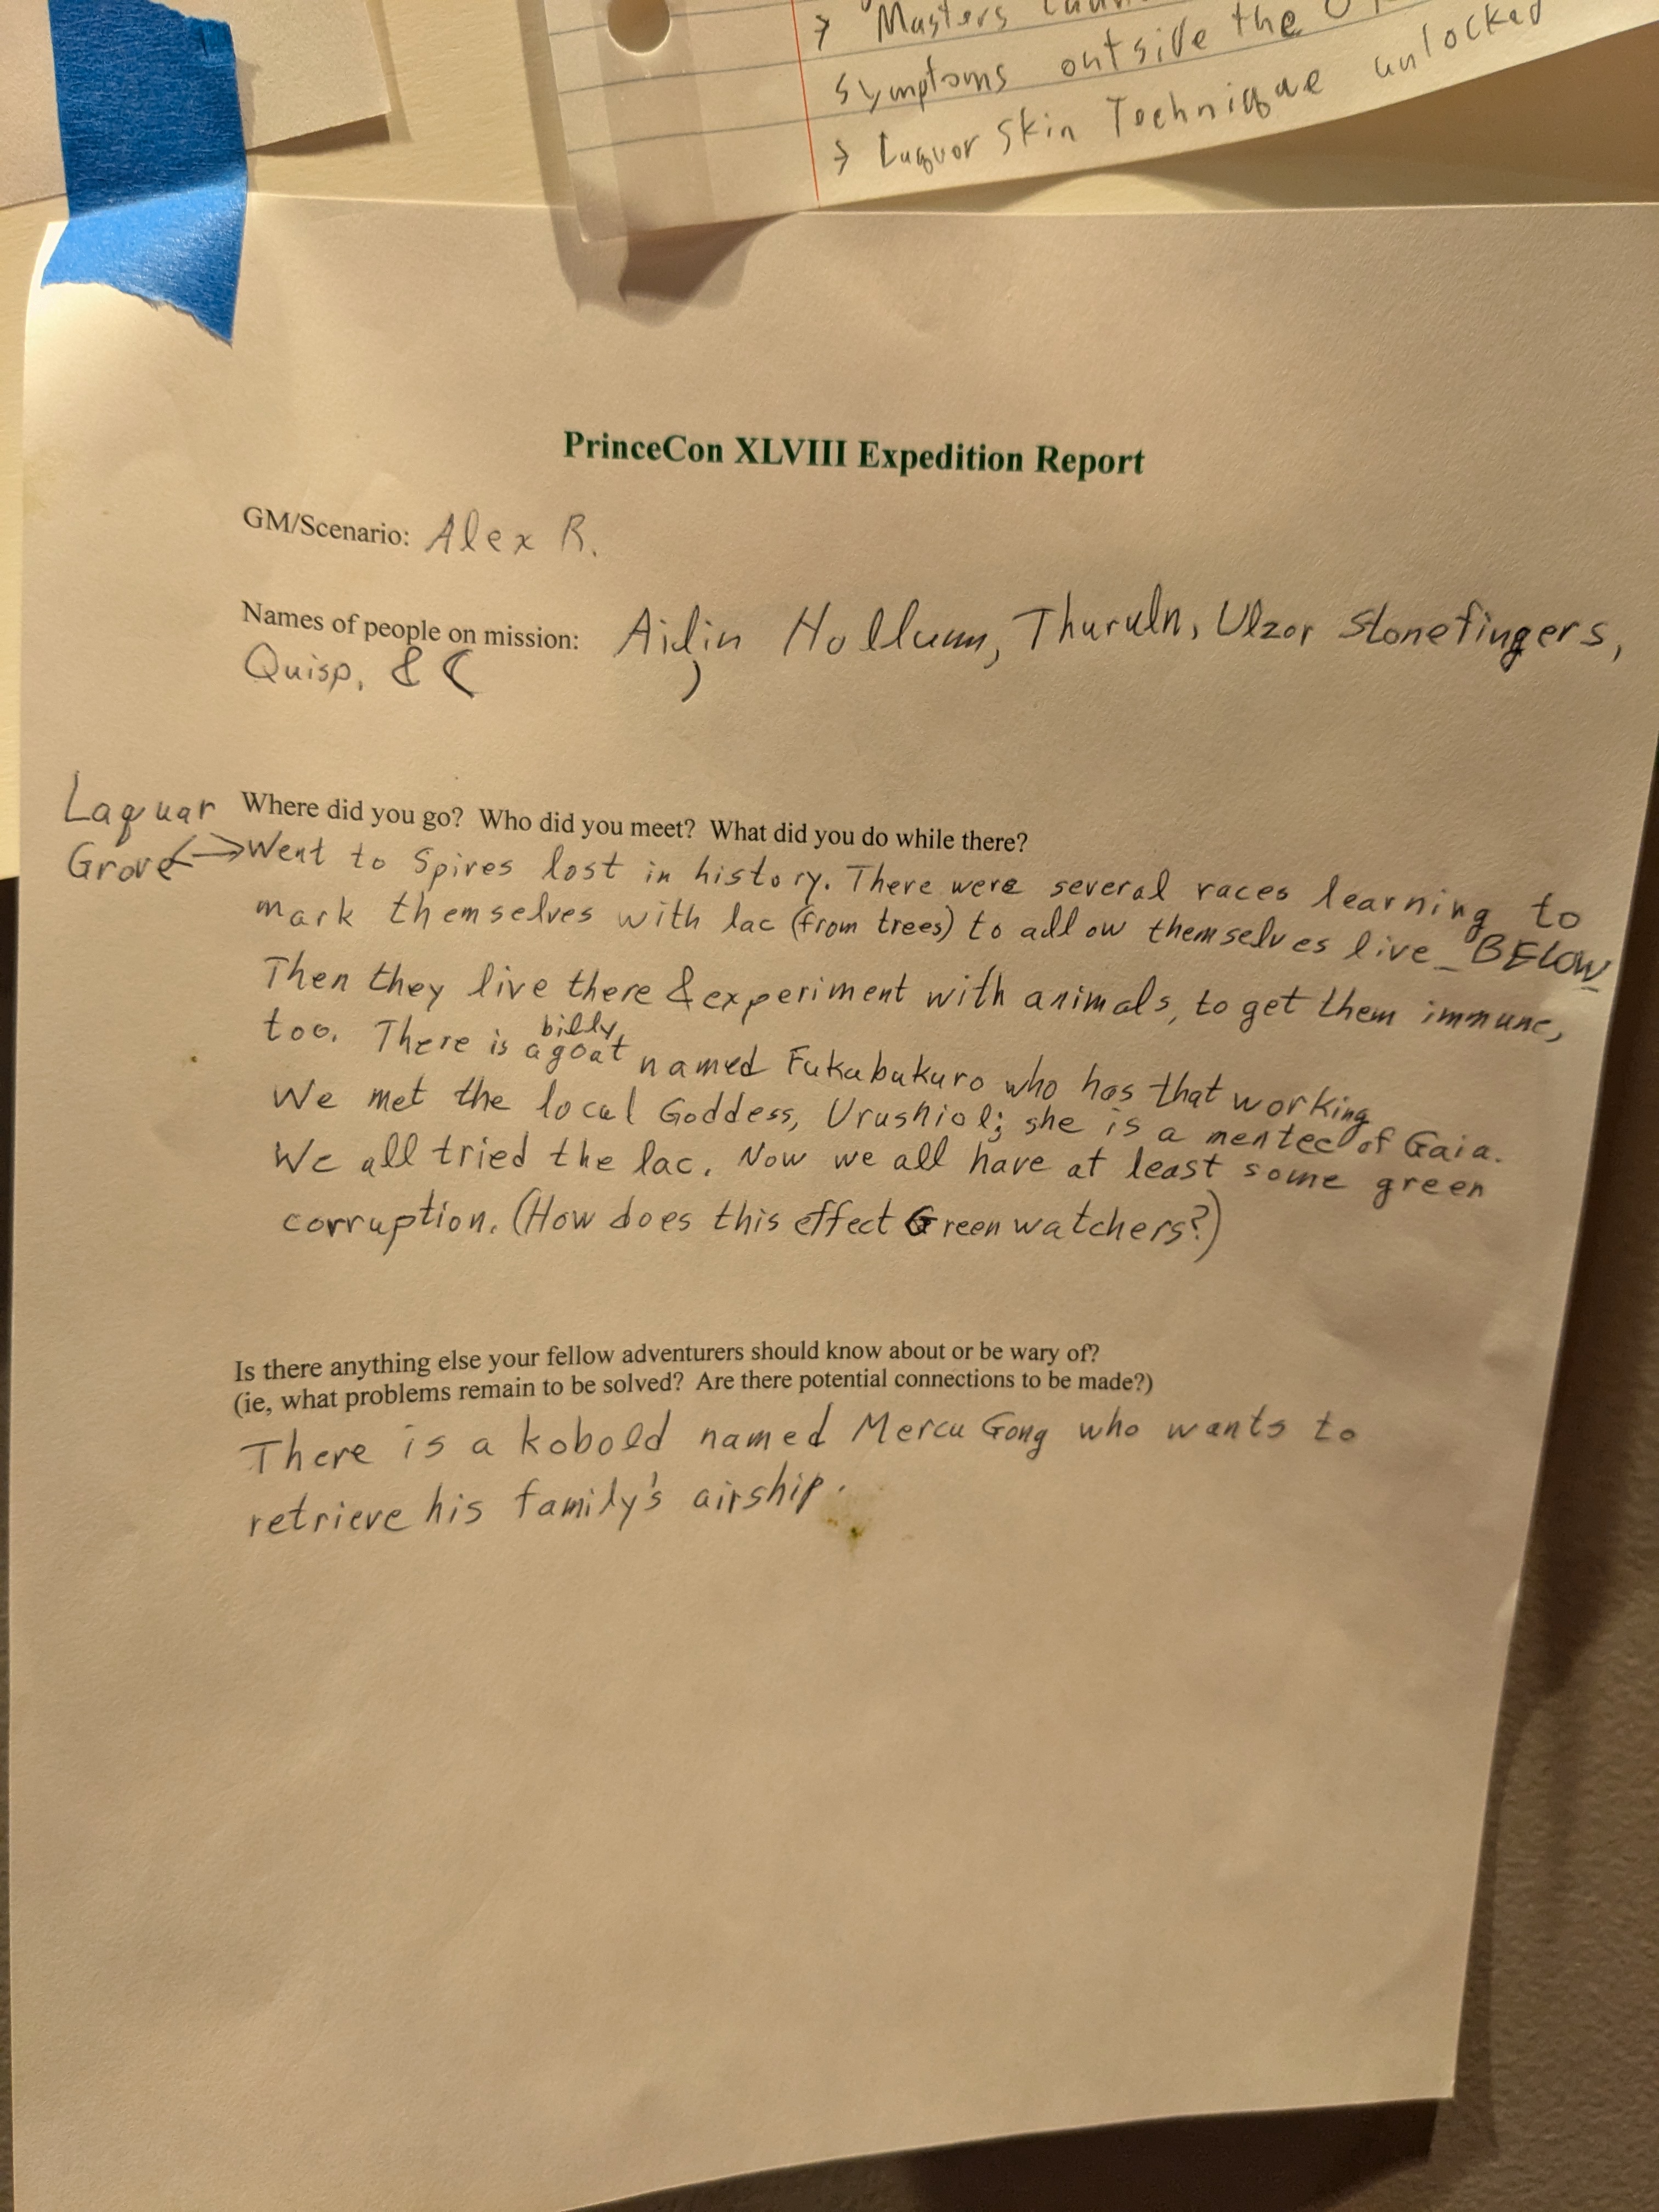 → Masters
symptoms outside the
→ Laquor Skin Technique unlocked
PrinceCon XLVIII Expedition Report
GM/Scenario: Alex R.
Names of people on mission: Aidin Hollumn, Thuruln, Ulzor Stonefingers,
Quisp, & ( )
Laquar
Grove
Where did you go? Who did you meet? What did you do while there?
Went to Spires lost in history. There were several races learning to
mark themselves with lac (from trees) to allow themselves live BELOW
Then they live there & experiment with animals, to get them immune,
too. There is a billy goat named Fukubukuro who has that working
We met the local Goddess, Urushiol; she is a mentee of Gaia.
We all tried the lac. Now we all have at least some green
corruption. (How does this effect Green watchers?)
Is there anything else your fellow adventurers should know about or be wary of?
(ie, what problems remain to be solved? Are there potential connections to be made?)
There is a kobold named Mercu Gong who wants to
retrieve his family's airship.